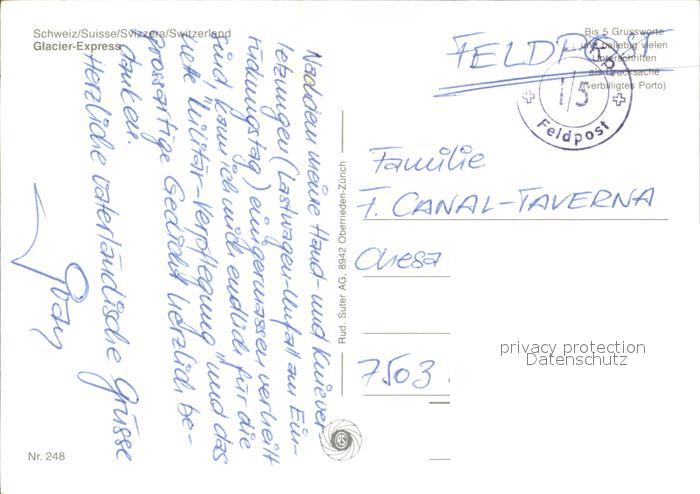 Schweiz/Suisse/Svizzera/Switzerland
Glacier-Express
Nachdem meine Hand- und Kniever-
letzungen (Lastwagen-Unfall am Ein-
rückungstag) einigermassen verheilt
sind, kann ich mich endlich für die
liebe "Militär-Verpflegung" und das
grossartige Gedicht herzlich be-
danken.
Herzliche vaterländische Grüsse
Nr. 248
Rud. Suter AG, 8942 Oberrieden-Zürich
RS
FELDPOST
Bis 5 Grussworte
und beliebig vielen
Unterschriften
als Drucksache
(verbilligtes Porto)
1/5
Feldpost
Familie
F. CANAL-TAVERNA
Chesa
7503
privacy protection
Datenschutz